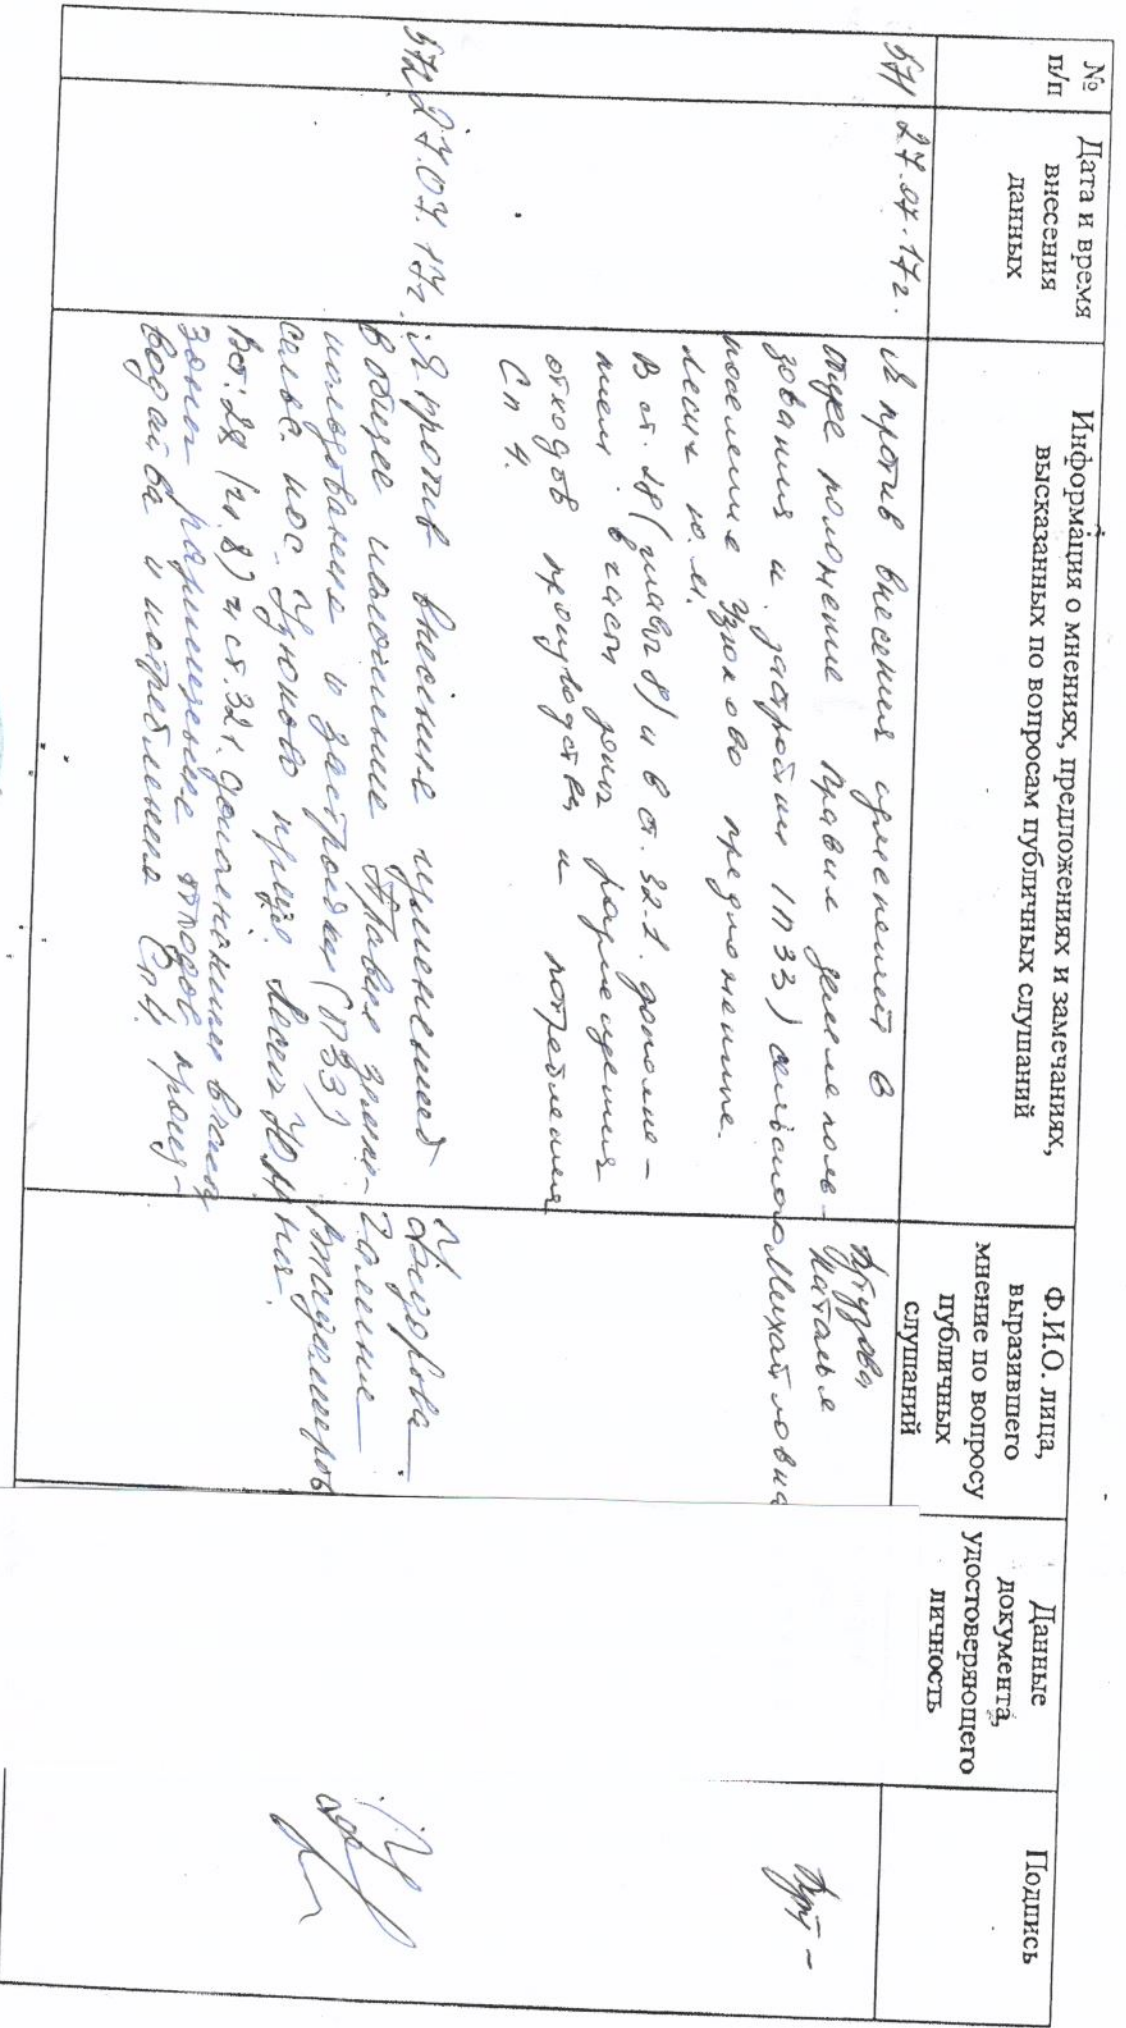 №
п/п
Дата и время
внесения
данных
Информация о мнениях, предложениях и замечаниях,
высказанных по вопросам публичных слушаний
Ф.И.О. лица,
выразившего
мнение по вопросу
публичных
слушаний
Данные
документа,
удостоверяющего
личность
Подпись
571
27.07.17г.
Я против внесения изменений в
общее положение правил землеполь-
зования и застройки (ПЗЗ) сельского
поселение Узюково предложенные
Лесик Ю.М.
В ст. 28 (глава 8) и в ст. 32.1. дополне-
нием в части зоны размещения
отходов производства и потребления
Сп 4.
Наталья
Михайловна
572
27.07.17г.
Я против внесение изменений
в общее положение Правил земле-
пользования и застройки (ПЗЗ)
сельс. пос. Узюково предл. Лесик Ю.М
В ст. 28 (гл. 8) и ст. 32 1. дополнениями в части
зоны размещение отходов произ-
водства и потребления Сп4.